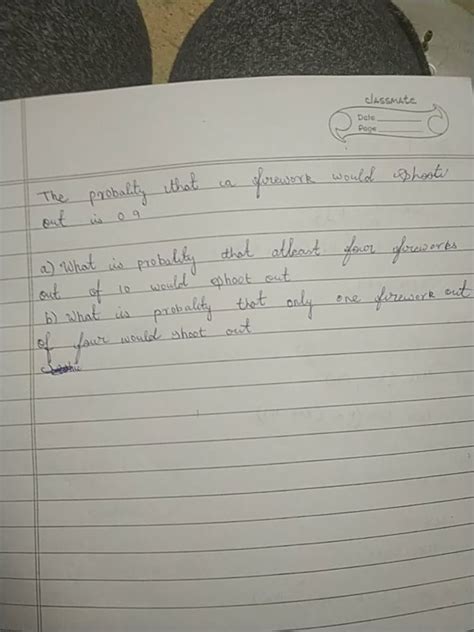 classmate
Date
Page
The probality that a firework would shoot
out is 0.9
a) What is probality that atleast four fireworks
out of 10 would shoot out
b) What is probality that only one firework out
of four would shoot out